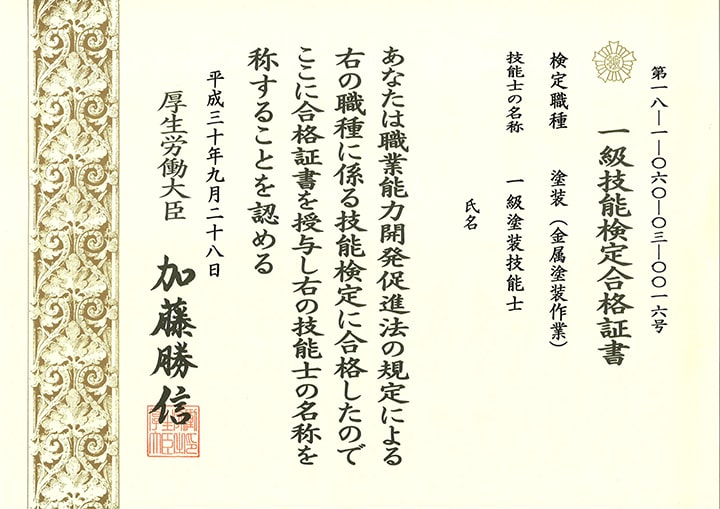 第一八―一―〇六〇―〇三―〇〇一六号
一級技能検定合格証書
検定職種　塗装（金属塗装作業）
技能士の名称　一級塗装技能士
氏名
あなたは職業能力開発促進法の規定による
右の職種に係る技能検定に合格したので
ここに合格証書を授与し右の技能士の名称を
称することを認める
平成三十年九月二十八日
厚生労働大臣　加藤勝信